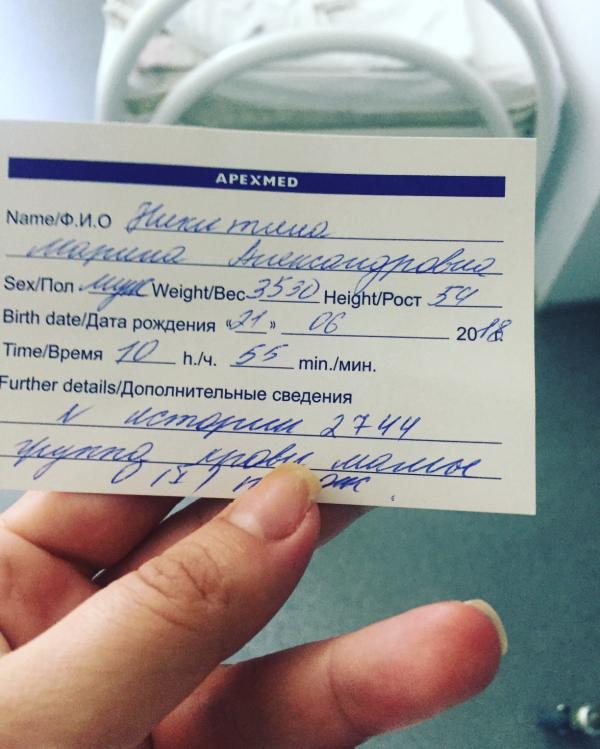 APEXMED
Name/Ф.И.О Никитина
Марина Александровна
Sex/Пол муж Weight/Вес 3530 Height/Рост 54
Birth date/Дата рождения «21» 06 2018
Time/Время 10 h./ч. 55 min./мин.
Further details/Дополнительные сведения
N истории 2744
группа крови мамы